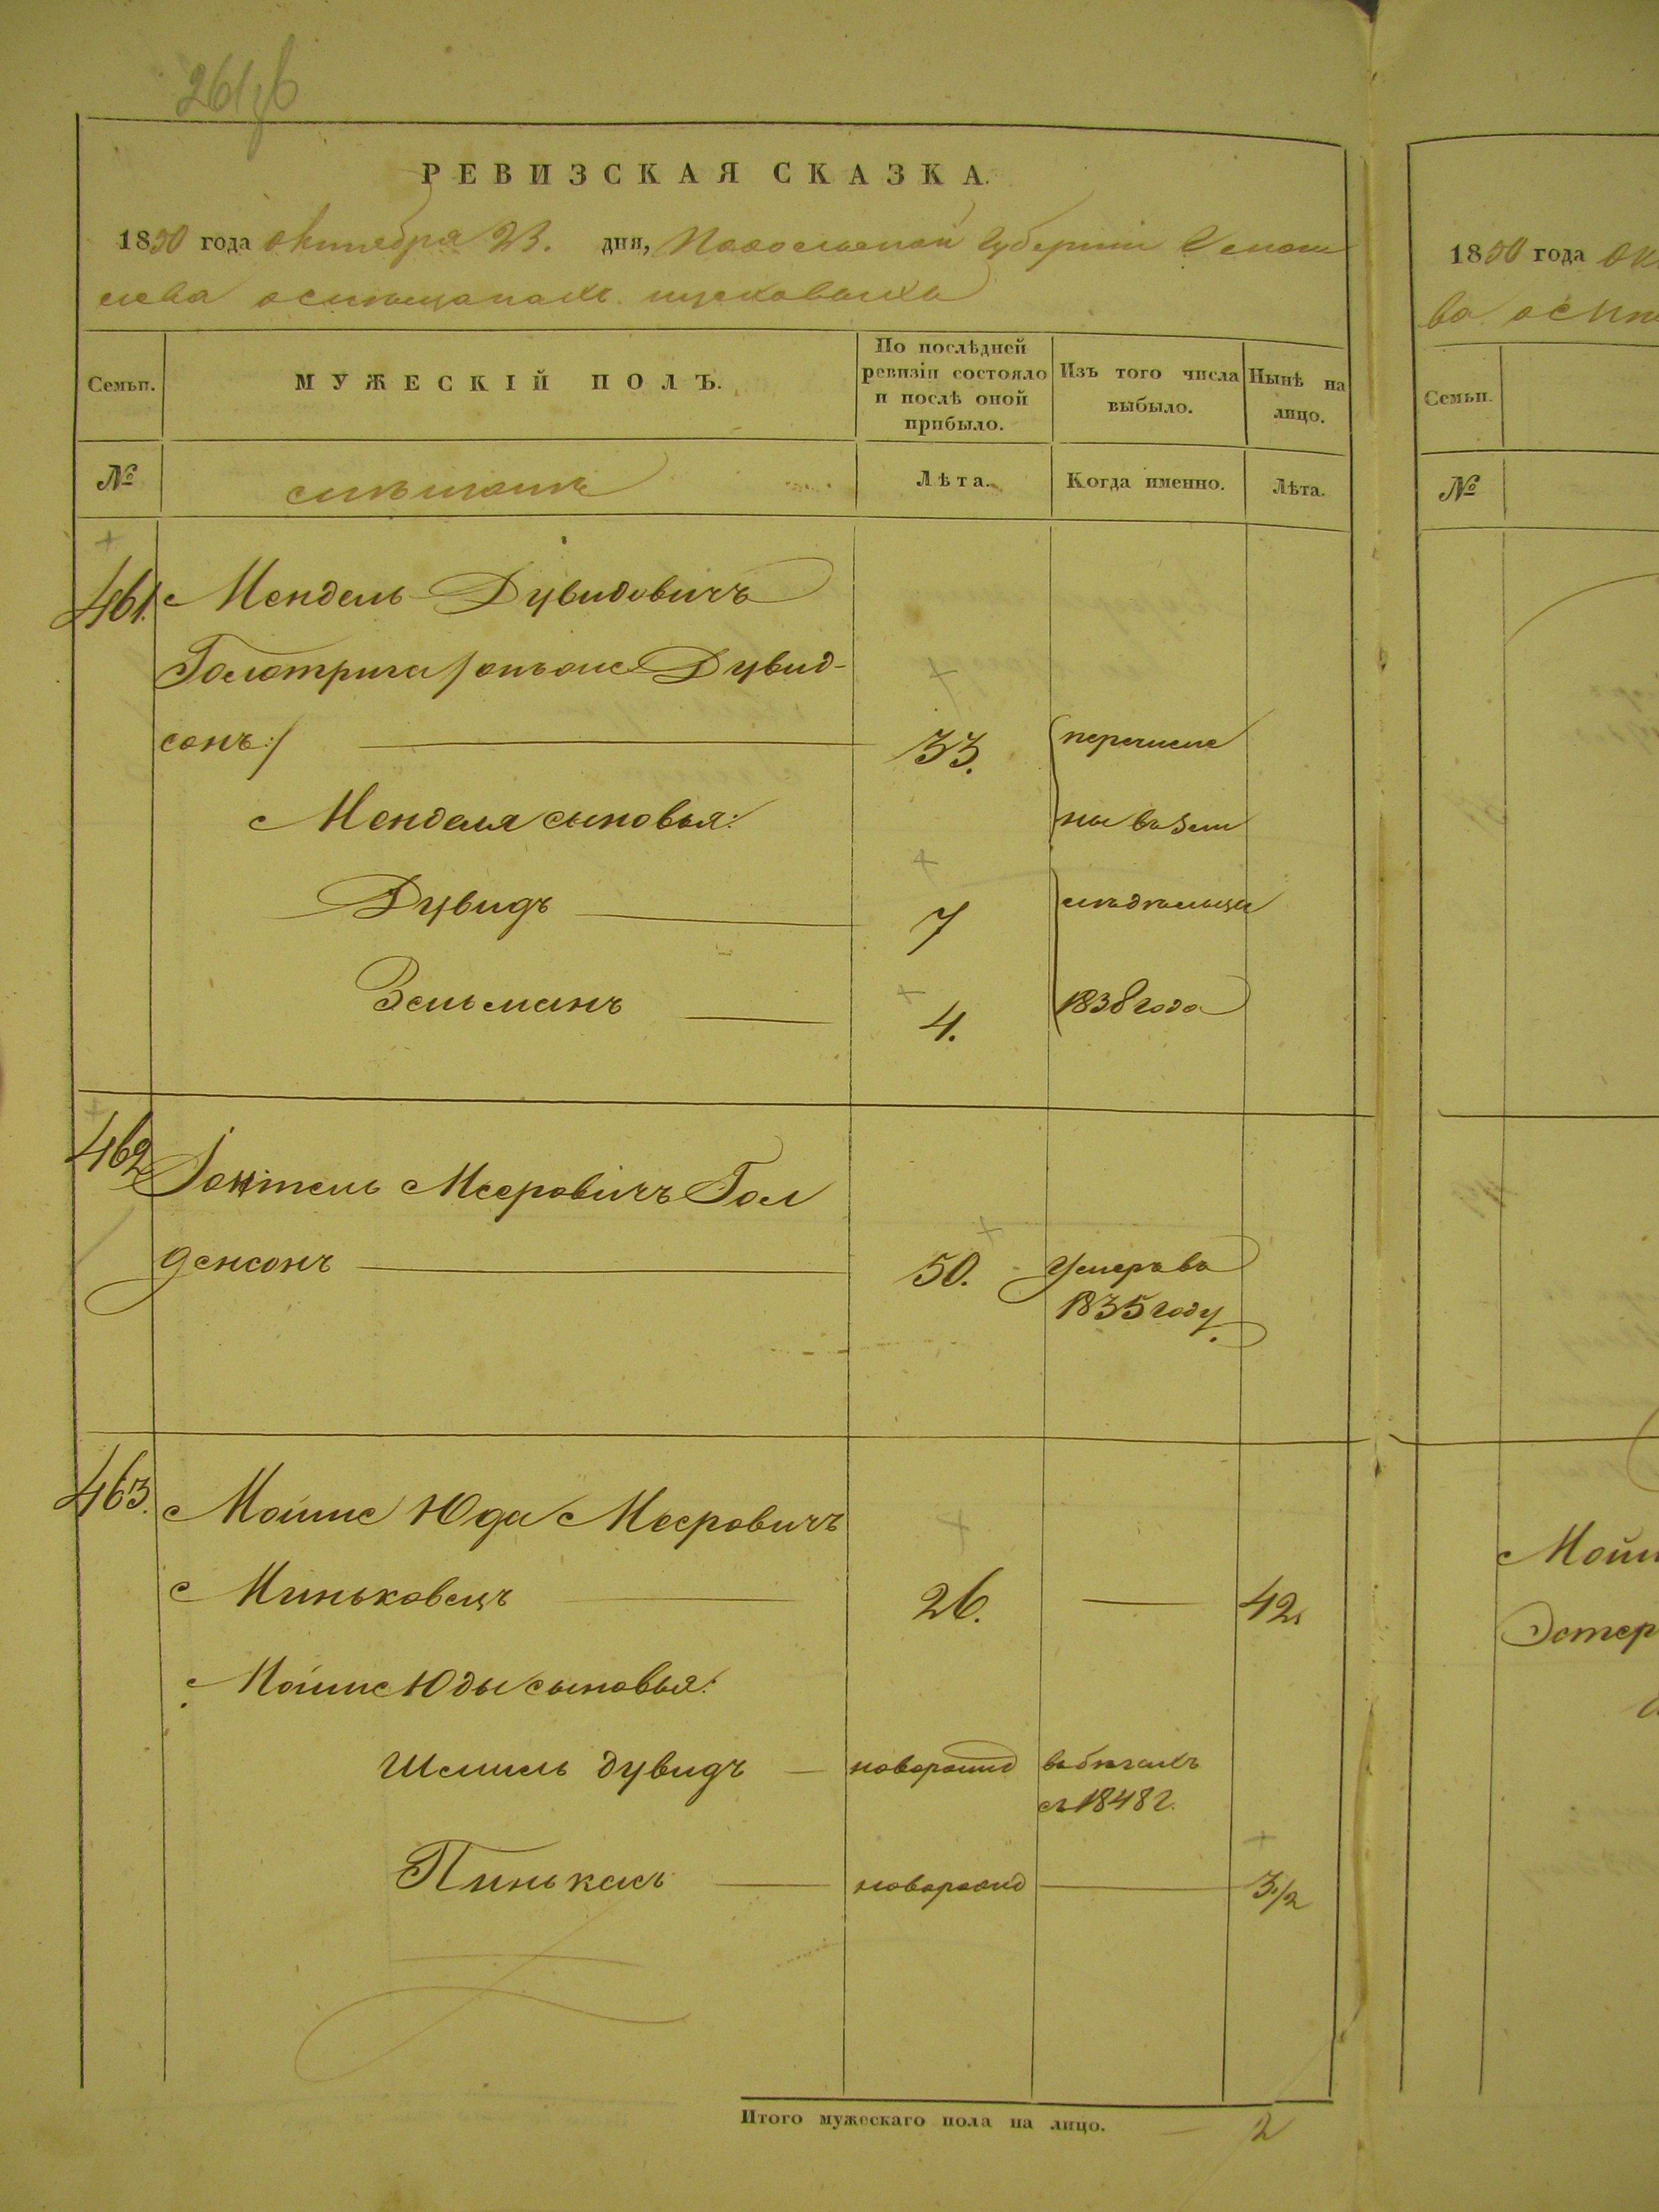 РЕВИЗСКАЯ СКАЗКА.
1850 года октября 23. дня, Подольской Губернии
Семьи. МУЖЕСКІЙ ПОЛЪ. По послѣдней ревизіи состояло и послѣ оной прибыло. Изъ того числа выбыло. Нынѣ на лицо.
№ Лѣта. Когда именно. Лѣта.
461. Мендель Дувидовичъ
Голотрига /онъ же Дувид-
сонъ:/ 33. перечисле
Менделя сыновья: ны въ Зем
Дувидъ 7 ледѣльцы
Зельманъ 4. 1838 года
462 Мееровичъ Гол
денсонъ 50. Умеръ въ
1835 году.
463. Мошие Юда Мееровичъ
Миньковецъ 26. 42.
Мошие Юды сыновья:
Шемиль Дувидъ новорожд въ бѣгахъ
съ 1848 г.
Пинькасъ новорожд 3 1/2
Итого мужескаго пола на лицо. 2
1850 года
Семьи.
№
Мойш
Эстер